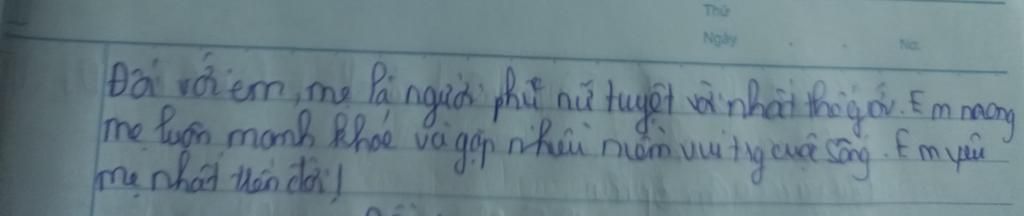 Thứ
Ngày . . No.
Đối với em, mẹ là người phụ nữ tuyệt vời nhất thế giới. Em mong
mẹ luôn mạnh khoẻ và gặp nhiều niềm vui tng cuộc sống. Em yêu
mẹ nhất trên đời!